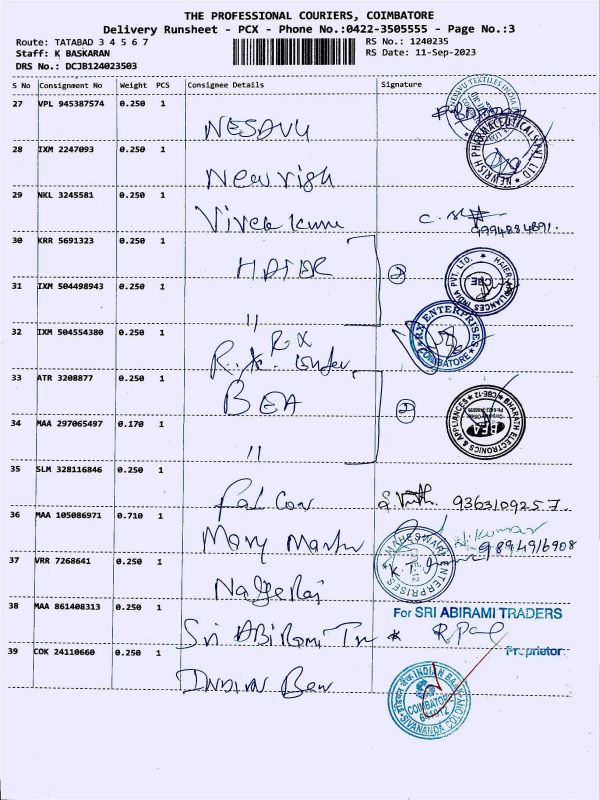 THE PROFESSIONAL COURIERS, COIMBATORE
Delivery Runsheet - PCX - Phone No.:0422-3505555 - Page No.:3
Route: TATABAD 3 4 5 6 7
RS No.: 1240235
Staff: K BASKARAN
RS Date: 11-Sep-2023
DRS No.: DCJB124023503
S No Consignment No Weight PCS Consignee Details Signature
27 VPL 945387574 0.250 1
NESAVU
NESAVU TEXTILES INDIA
28 IXM 2247093 0.250 1
Newrish
NEWRISH PHARMACEUTICALS PVT. LTD
29 NKL 3245581 0.250 1
Vivek Kumar
9994884891.
30 KRR 5691323 0.250 1
HAIER
2
HAIER APPLIANCES INDIA PVT. LTD.
CBE
31 IXM 504498943 0.250 1
"
32 IXM 504554380 0.250 1
RX
RX ENTERPRISES
COIMBATORE
33 ATR 3208877 0.250 1
BEA
2
BHARATH ELECTRONICS & APPLIANCES
CBE-12
BEA
34 MAA 297065497 0.170 1
"
35 SLM 328116846 0.250 1
Falcon
9363109257
36 MAA 105086971 0.710 1
Mary Martin
9894916908
37 VRR 7268641 0.250 1
MAHESWARI ENTERPRISES
38 MAA 861408313 0.250 1
Sri ABIRAMI Tr
For SRI ABIRAMI TRADERS
Proprietor
39 COK 24110660 0.250 1
INDIAN Ban
INDIAN BANK
COIMBATORE
641012
SIVANANDA COLONY